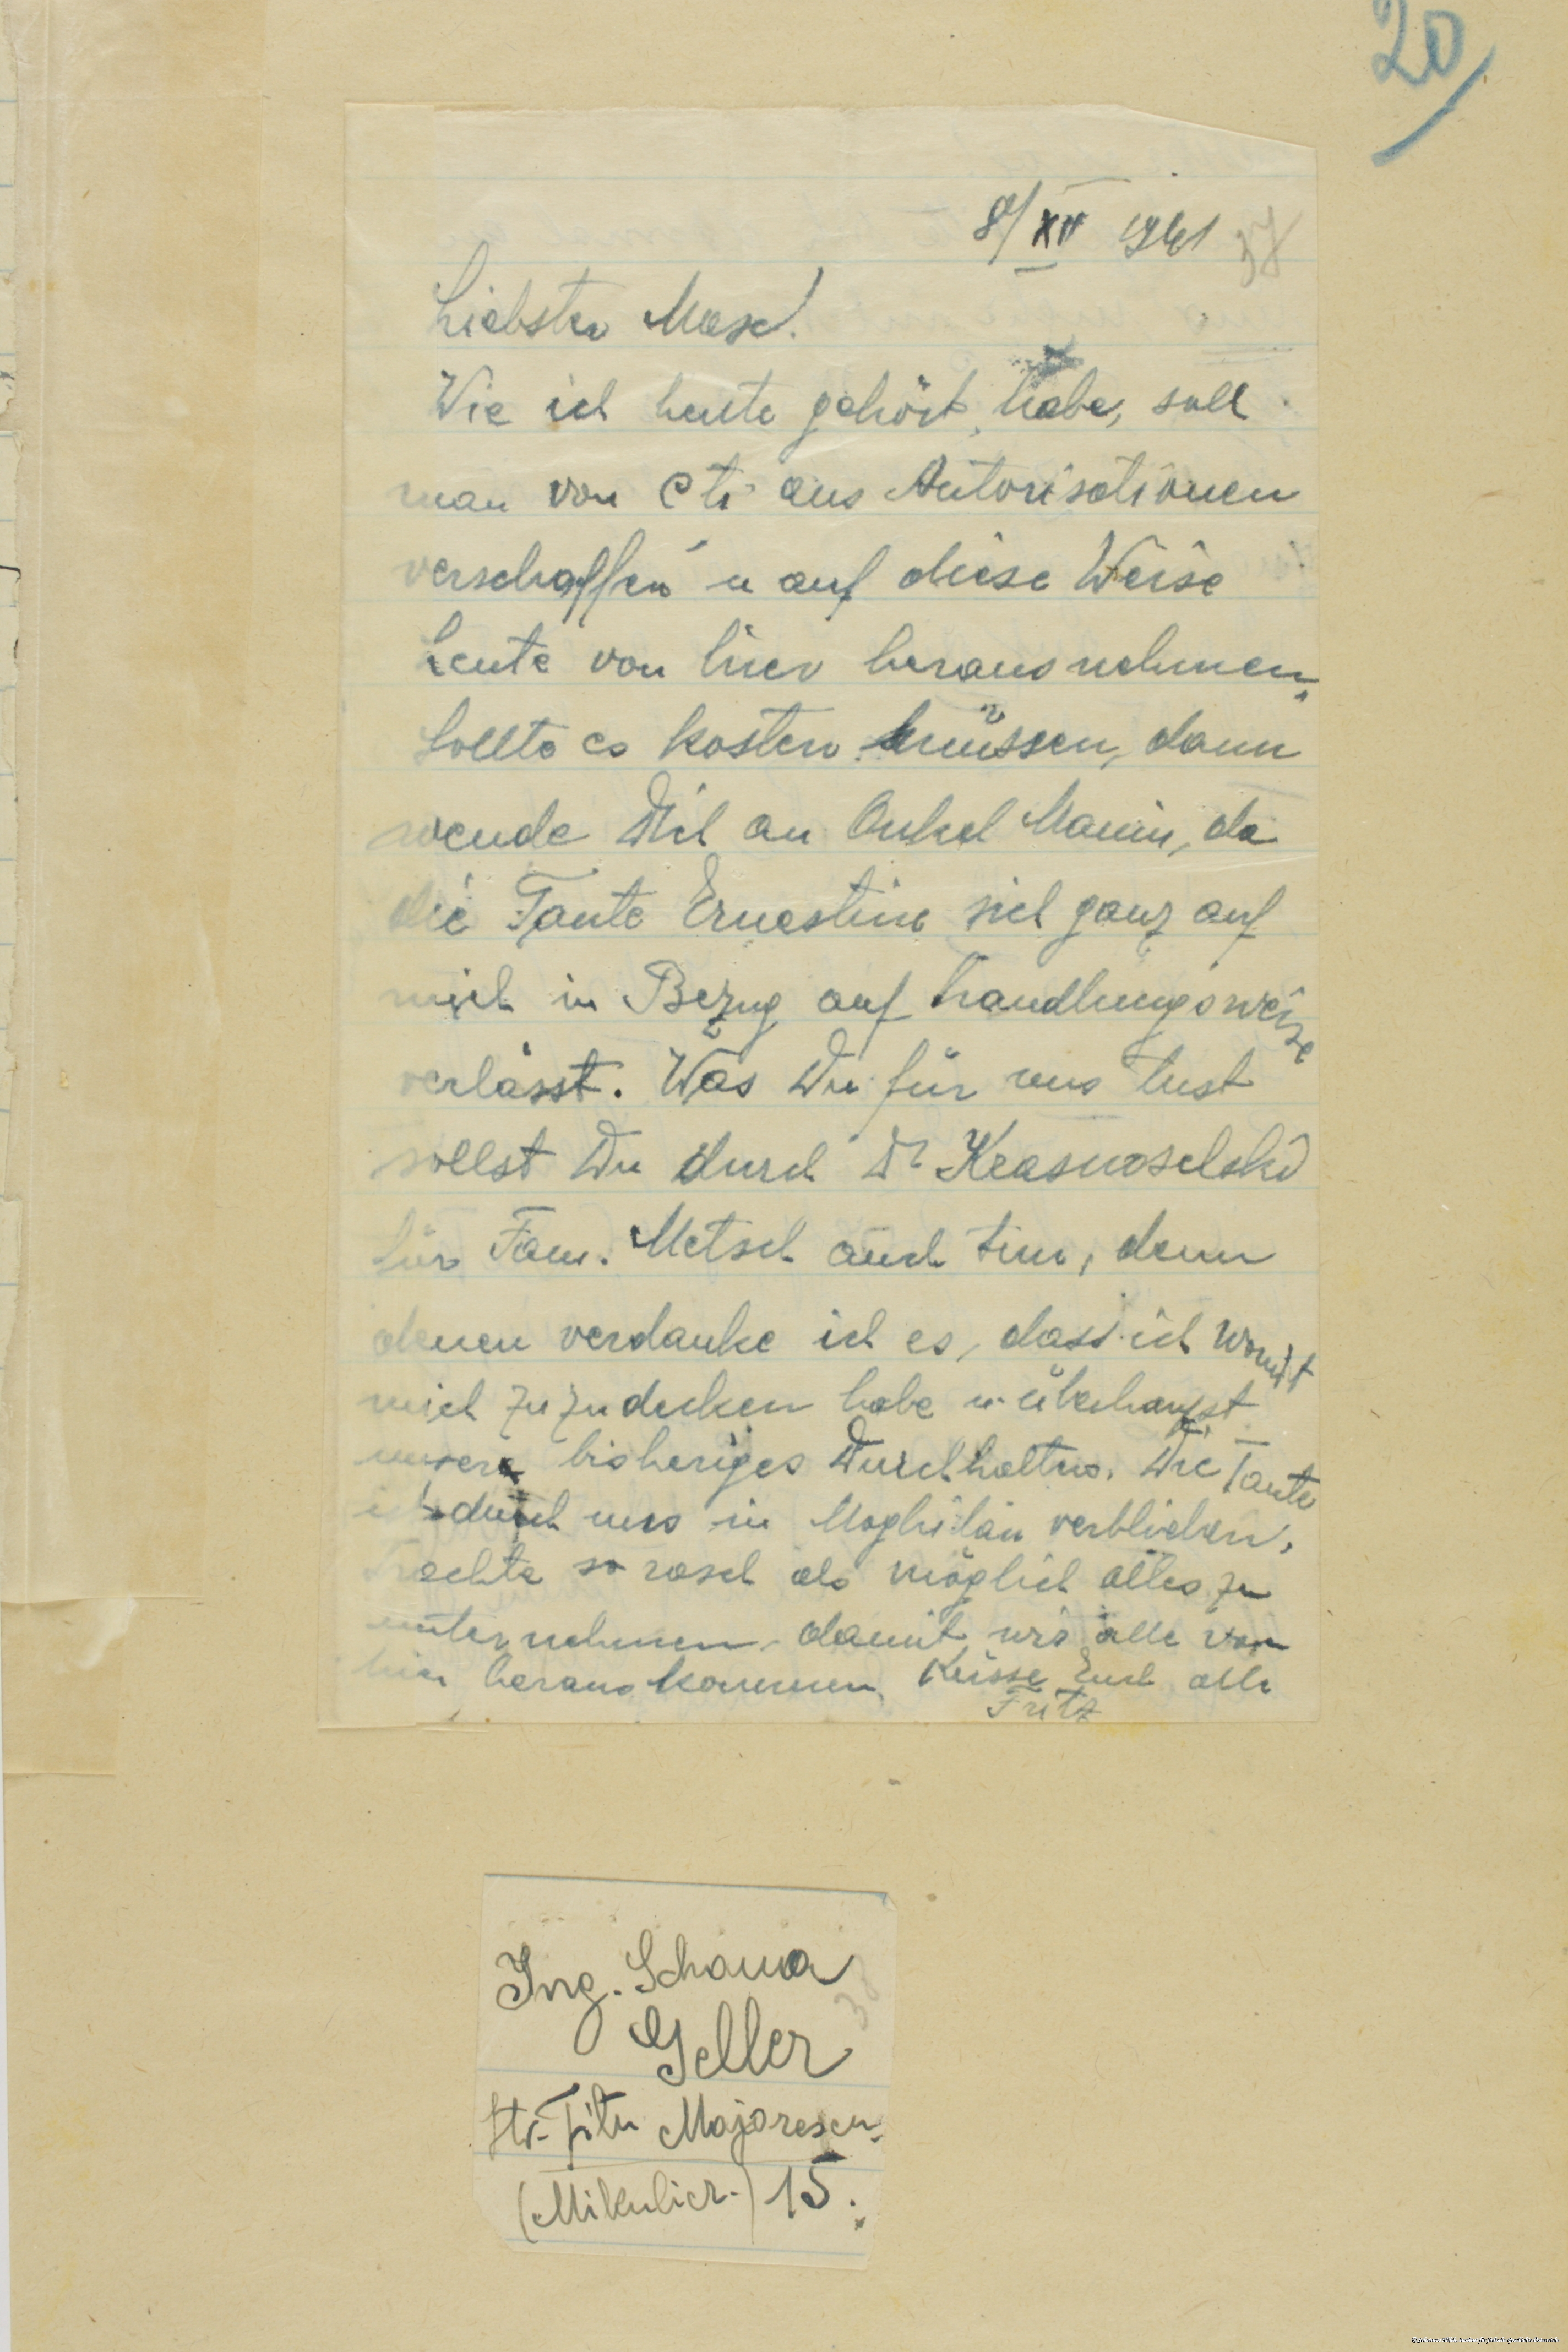 20
8/XII 1941
37
Liebster Mosel!
Wie ich heute gehört habe, soll
man von Cti aus Autorisationen
verschaffen u auf diese Weise
Leute von hier herausnehmen.
Sollte es kosten müssen, dann
wende Dich an Onkel Maniu, da
die Tante Ernestine sich ganz auf
mich in Bezug auf Handlungsweise
verlässt. Was Du für uns tust
sollst Du durch Dr Krasnoselski
für Fam. Metsch auch tun, denn
denen verdanke ich es, dass ich womit
mich zuzudecken habe u. überhaupt
unsere bisheriges Durchhalten. Die Tante
ist durch uns in Moghilau verblieben.
Trachte so rasch als möglich alles zu
unternehmen, damit wir alle von
hier herauskommen. Küsse Euch alle
Fritz
Ing. Schama
38
Geller
Str. Titu Majorescu.
(Mikulicz.) 15.